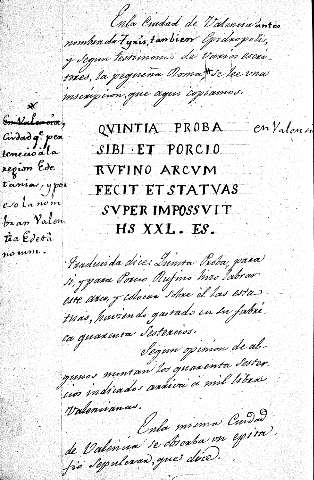 En la Ciudad de Valencia antes
nombrada Tyris, tambien Epidropolis,
y segun testimonio de varios escri-
tores, la pequeña Roma * se lee una
inscripcion, que aqui copiamos.
*
En Valencia,
Ciudad q.e per
tenecio a la
region Ede
tania, y por
eso la nom
bran Valen
tia Edeta
norum.
en Valensia
QVINTIA PROBA
SIBI · ET PORCIO
RUFINO ARCVM
FECIT ET STATVAS
SVPER IMPOSSVIT
HS XXL. ES.
Traducida dice: Quinta Proba, para
si, y para Porcio Rufino hizo labrar
este arco, y colocar sobre él las esta-
tuas, haviendo gastado en su fabri-
ca quarenta Sestercios.
Segun opinion de al-
gunos montan los quarenta Sester-
cios indicados arriba a mil libras
Valencianas.
En la misma Ciudad
de Valencia se observa un epita
fio sepulcral, que dice.